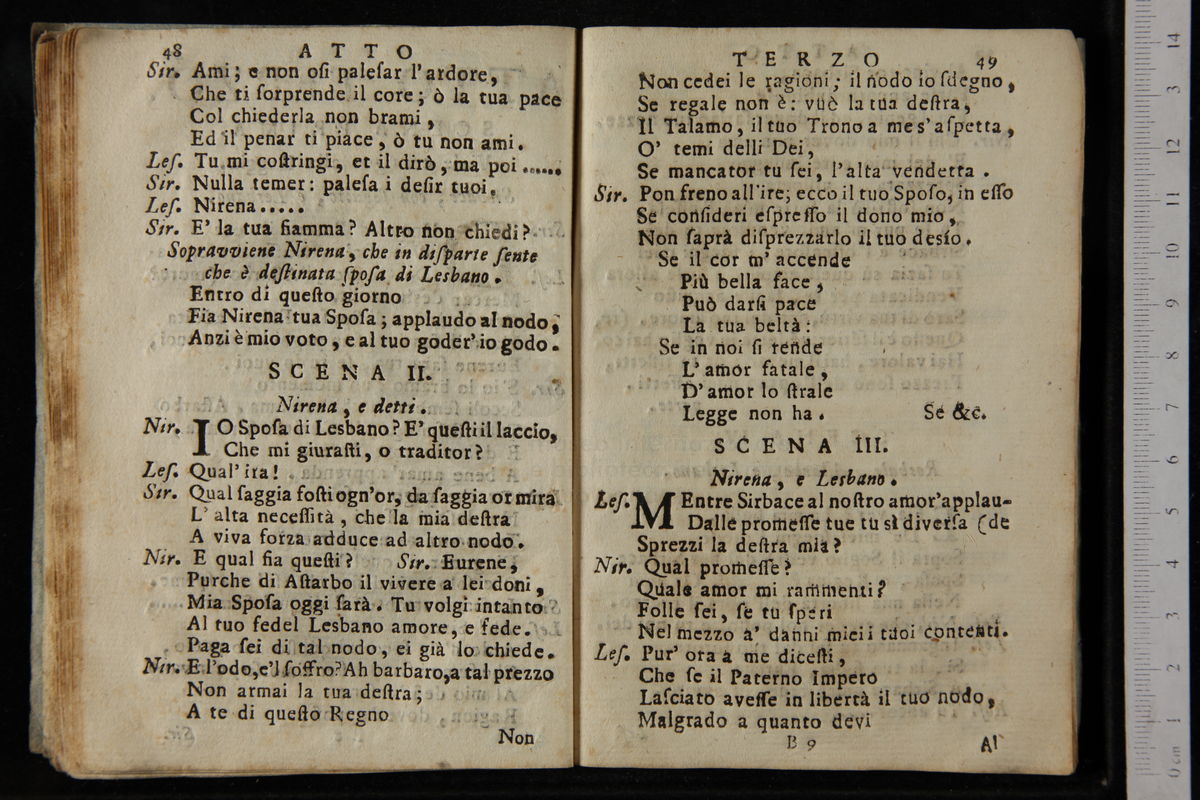 48 ATTO
Sir. Ami; e non oſi paleſar l'ardore,
Che ti ſorprende il core; ò la tua pace
Col chiederla non brami,
Ed il penar ti piace, ò tu non ami.
Leſ. Tu mi coſtringi, et il dirò, ma poi ......
Sir. Nulla temer: paleſa i deſir tuoi.
Leſ. Nirena.....
Sir. E' la tua fiamma? Altro non chiedi?
Sopravviene Nirena, che in diſparte ſente
che è deſtinata ſpoſa di Lesbano.
Entro di queſto giorno
Fia Nirena tua Spoſa; applaudo al nodo,
Anzi è mio voto, e al tuo goder' io godo.
SCENA II.
Nirena, e detti.
Nir. IO Spoſa di Lesbano? E' queſti il laccio,
Che mi giuraſti, o traditor?
Leſ. Qual' ira!
Sir. Qual ſaggia foſti ogn'or, da ſaggia or mira
L' alta neceſſità, che la mia deſtra
A viva forza adduce ad altro nodo.
Nir. E qual fia queſti? Sir. Eurene,
Purche di Aſtarbo il vivere a lei doni,
Mia Spoſa oggi ſarà. Tu volgi intanto
Al tuo fedel Lesbano amore, e fede.
Paga ſei di tal nodo, ei già lo chiede.
Nir. E l'odo, e'l ſoffro? Ah barbaro, a tal prezzo
Non armai la tua deſtra;
A te di queſto Regno
Non
TERZO 49
Non cedei le ragioni; il nodo io ſdegno,
Se regale non è: vuè la tua deſtra,
Il Talamo, il tuo Trono a me s' aſpetta,
O' temi delli Dei,
Se mancator tu ſei, l'alta vendetta.
Sir. Pon freno all'ire; ecco il tuo Spoſo, in eſſo
Se conſideri eſpreſſo il dono mio,
Non ſaprà diſprezzarlo il tuo desío.
Se il cor m' accende
Più bella face,
Può darſi pace
La tua beltà:
Se in noi ſi rende
L' amor fatale,
D' amor lo ſtrale
Legge non ha. Se &c.
SCENA III.
Nirena, e Lesbano.
Leſ. MEntre Sirbace al noſtro amor' applau-
Dalle promeſſe tue tu sì diverſa (de
Sprezzi la deſtra mia?
Nir. Qual promeſſe?
Quale amor mi rammenti?
Folle ſei, ſe tu ſperi
Nel mezzo a' danni miei i tuoi contenti.
Leſ. Pur' ora a me diceſti,
Che ſe il Paterno Impero
Laſciato aveſſe in libertà il tuo nodo,
Malgrado a quanto devi
B 9 Al
0 cm 1 2 3 4 5 6 7 8 9 10 11 12 13 14